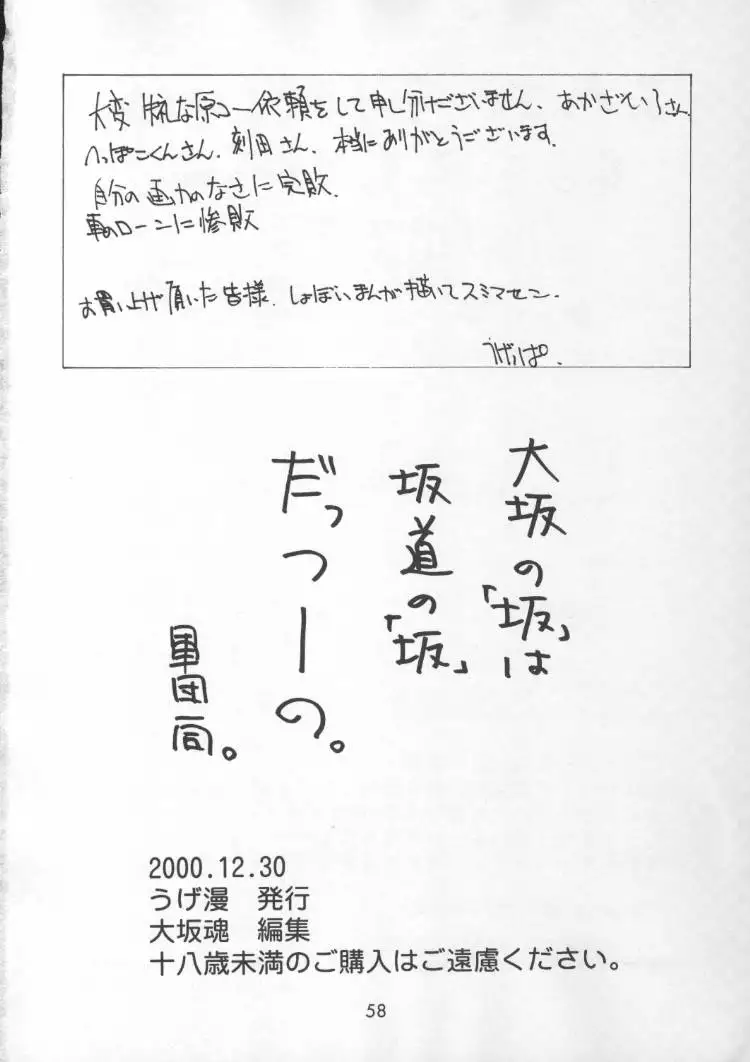 大変 な原コー依頼をして申し分けございません、あかざとうさん
へっぽこくんさん、刻田さん、本当にありがとうございます.
自分の画力のなさに完敗.
車のローンに惨敗
お買い上げ頂いた皆様、しょぼいまんが描いてスミマセン.
うげっぱ.
大坂の「坂」は
坂道の「坂」
だっつーの。
軍団一同。
2000.12.30
うげ漫　発行
大坂魂　編集
十八歳未満のご購入はご遠慮ください。
58